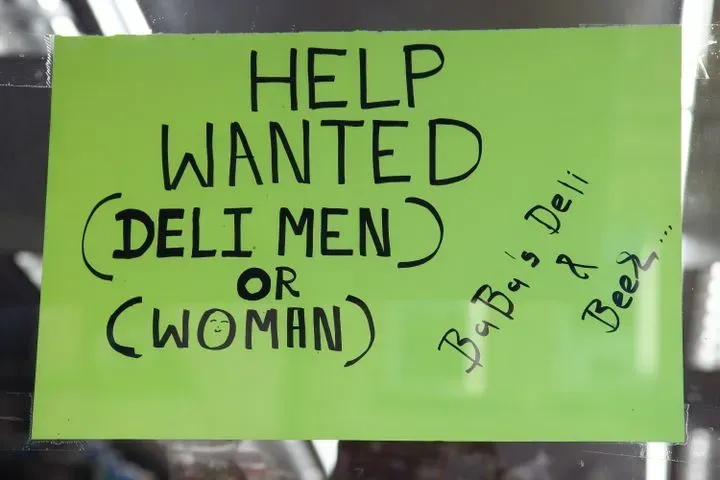 HELP
WANTED
(DELI MEN)
OR
(WOMAN)
BaBa's Deli
&
Beer...